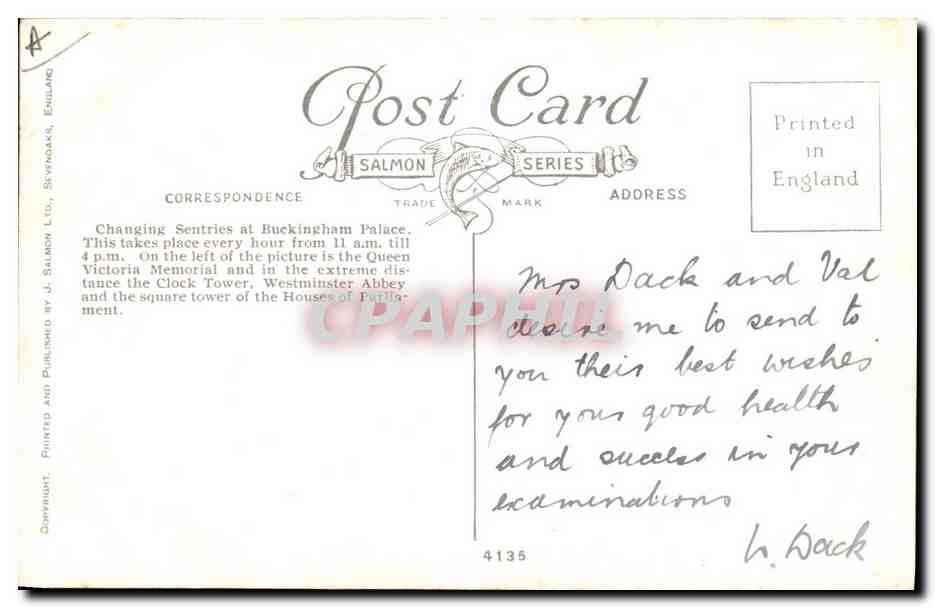 A
Post Card
SALMON SERIES
TRADE MARK
CORRESPONDENCE
ADDRESS
Printed
in
England
Changing Sentries at Buckingham Palace.
This takes place every hour from 11 a.m. till
4 p.m. On the left of the picture is the Queen
Victoria Memorial and in the extreme dis-
tance the Clock Tower, Westminster Abbey
and the square tower of the Houses of Parlia-
ment.
COPYRIGHT. PRINTED AND PUBLISHED BY J. SALMON LTD., SEVENOAKS, ENGLAND
CPAPHIL
Mrs Dack and Val
desire me to send to
you their best wishes
for your good health
and success in your
examinations
Dack
4135